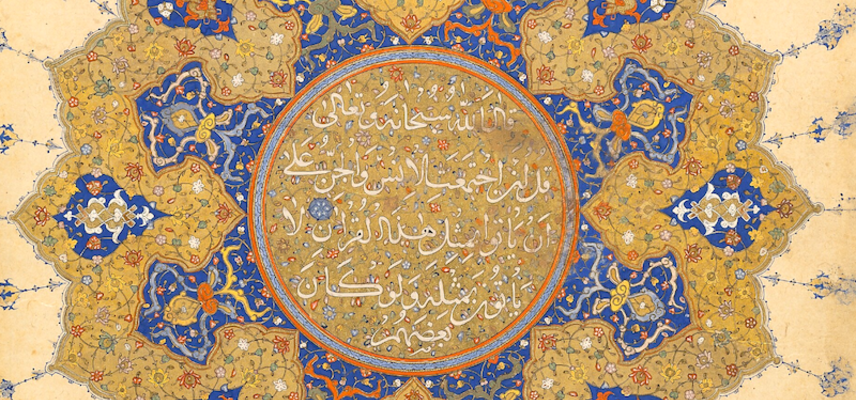 قال الله سبحانه وتعالى
قل لئن اجتمعت الانس والجن على
ان ياتوا بمثل هذا القران لا
ياتون بمثله ولو كان
بعضهم